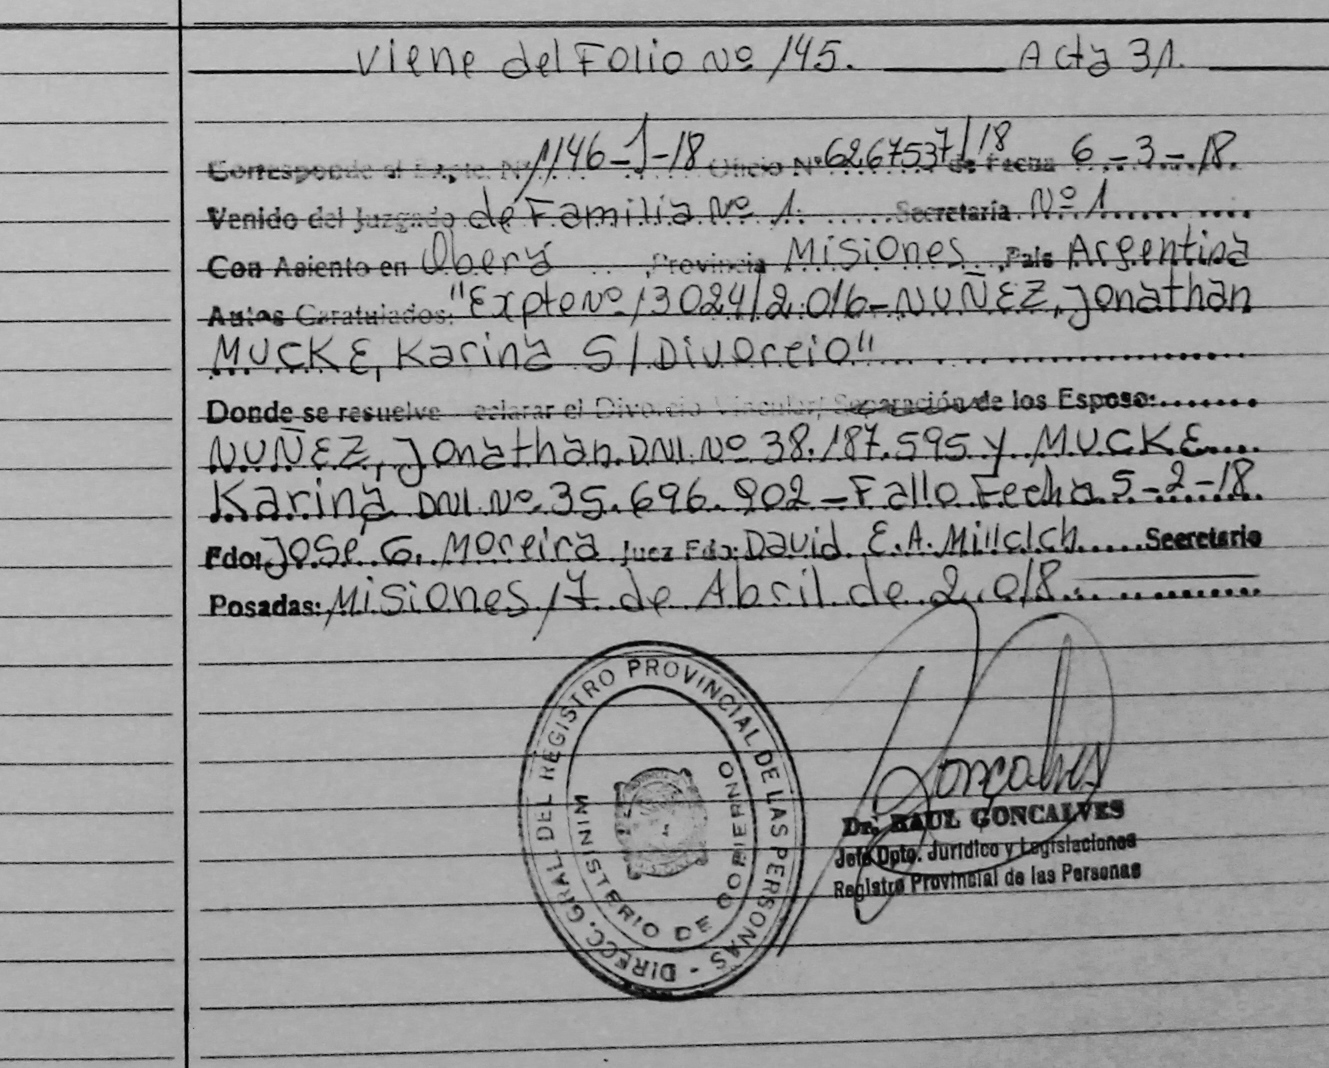 Viene del Folio Nº 145. Acta 31.
Corresponde al Expte. Nº 1146-J-18 Oficio Nº 6267537/18 de Fecha 6-3-18.
Venido del Juzgado de Familia Nº 1. Secretaría Nº 1
Con Asiento en Oberá Provincia Misiones País Argentina
Autos Caratulados: "Expte Nº 13024/2016-NUÑEZ, Jonathan
MUCKE, Karina S/Divorcio"
Donde se resuelve eclarar el Divorcio Vincular/ Separación de los Esposo:
NUÑEZ, Jonathan DNI. Nº 38.187.595 y MUCKE
Karina DNI. Nº 35.696.902 - Fallo Fecha 5-2-18.
Fdo: José G. Moreira Juez Fdo: David E.A. Millcich Secretario
Posadas: Misiones 17 de Abril de 2018
DIRECC. GRAL. DEL REGISTRO PROVINCIAL DE LAS PERSONAS -
MINISTERIO DE GOBIERNO
Goncalves
Dr. RAUL GONCALVES
Jefe Dpto. Jurídico y Legislaciones
Registro Provincial de las Personas